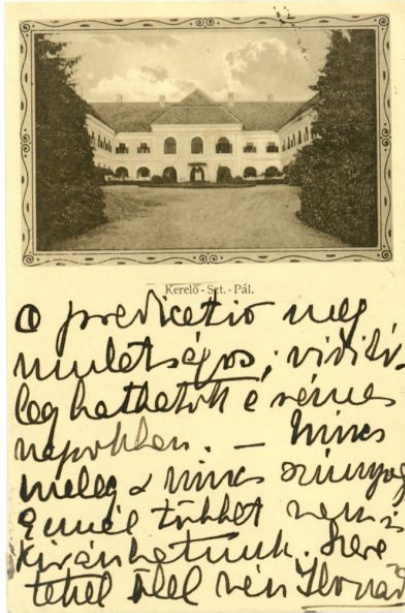 Kerelő-Szt.-Pál.
A predicatio meg
mulatságos; vidító-
lag hathatott e
napokban. — Nincs
meleg & nincs szúnyog
Ennél többet nem is
kívánhatunk. Szere
tettel ölel vén Ilonád